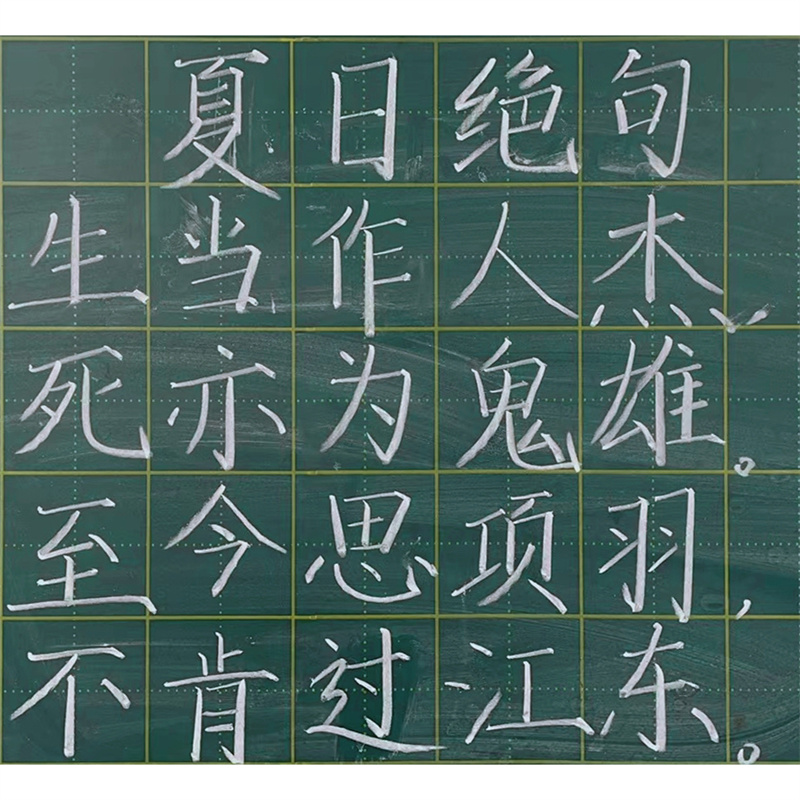 夏日绝句
生当作人杰,
死亦为鬼雄。
至今思项羽,
不肯过江东。